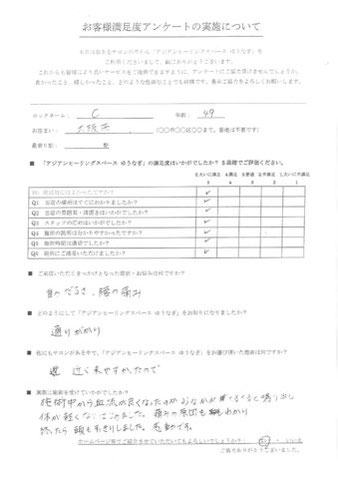 お客様満足度アンケートの実施について
本日は数あるサロンの中から「アジアンヒーリングスペース ゆうなぎ」を
ご利用くださいまして、誠にありがとうございます。
これからも皆様により良いサービスをご提供できますように、アンケートにご協力頂けませんでしょうか。
良かったこと、嬉しかったこと、どのような些細なことでも結構です。是非ご協力をよろしくお願いします。
C 年齢: 49
お住まい: 大阪市 (〇〇市〇〇区〇〇まで。番地は不要です)
最寄り駅: 駅
■ 「アジアンヒーリングスペース ゆうなぎ」の満足度はいかがでしたか? 5段階でご評価ください。
5.大いに満足 4.満足 3.普通 2.不満足 1.大いに不満
5 4 3 2 1
例: 庭は好みにまかったですか? ✓
Q1 当店の場所はすぐにわかりましたか? ✓
Q2 当店の雰囲気・清潔さはいかがでしたか? ✓
Q3 スタッフの対応はいかがでしたか? ✓
Q4 施術の説明は分かりやすかったですか? ✓
Q5 施術時間は適切でしたか? ✓
Q6 施術にご満足いただけましたか? ✓
■ ご来店いただくきっかけとなった症状・お悩みは何ですか?
首のだるさ、腰の痛み
■ どのようにして「アジアンヒーリングスペース ゆうなぎ」をお知りになりましたか?
通りがかり
■ 他にもサロンがある中で、「アジアンヒーリングスペース ゆうなぎ」をお選び頂いた理由は何ですか?
近く来やすかたので
■ 実際に施術を受けていかがでしたか?
施術中から血流が良くなったのかおなかがぐるぐると鳴り出し
体が軽くなりました。痛みの原因もわかり
終ったら 頭もすっきりしました。感動です。
ホームページ等でご紹介させていただいてもよろしいでしょうか? はい ・ いいえ
ご協力ありがとうございました。